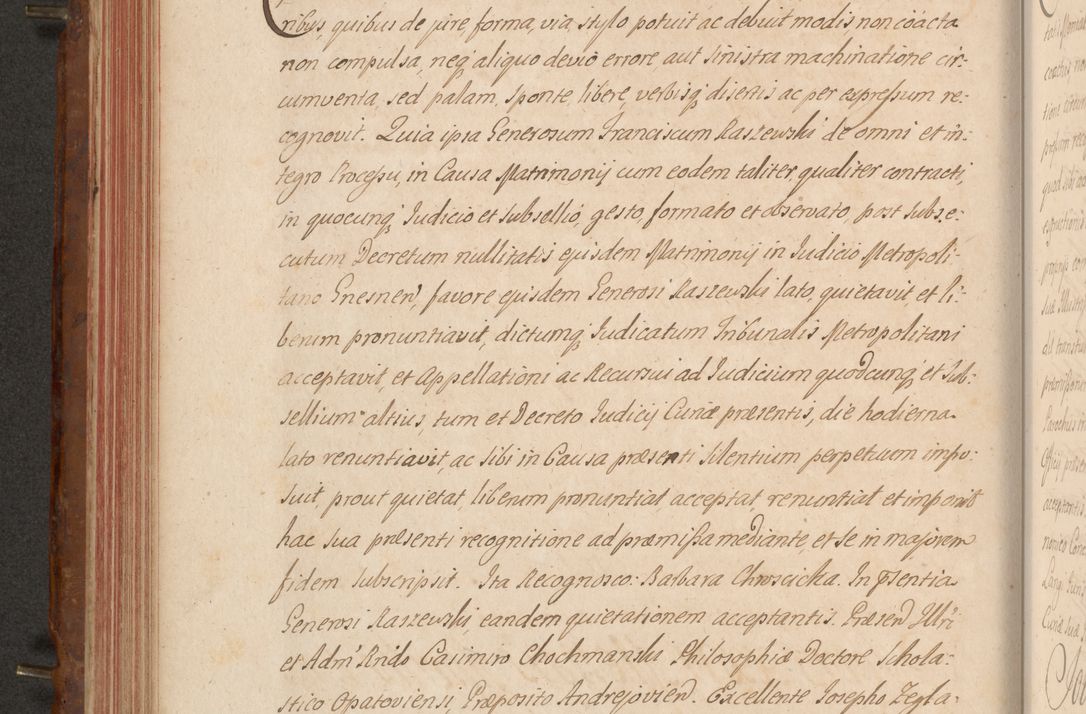 ribus, quibus de jure, forma, via, stylo potuit ac debuit modis non coácta
non compulsa, neq́ aliquo devio errore, aut sinistra machinatione cir-
cumventa, sed palam, sponte, libere, verbisq́ disertis ac per expressum re-
cognovit. Quia ipsa Generosum Franciscum Raszewski de omni et in-
tegro Processu, in Causa Matrimonij cum eodem taliter qualiter contracti,
in quocunq́ Iudicio et Subsellio, gesto, formato et observato, post subse-
cutum Decretum nullitatis ejusdem Matrimonij in Iudicio Metropoli-
tano Gnesnen, favore ejusdem Generosi Raszewski lato, quietavit, et li-
berum pronuntiavit, dictumq́ Iudicatum Tribunalis Metropolitani
acceptavit, et Appellationi ac Recursui ad Iudicium quodcunq́ et Sub-
sellium altius, tum et Decreto Iudicij Curiæ præsentis, die hodierna
lato renuntiavit, ac sibi in Causa præsenti Silentium perpetuum impo-
suit, prout quietat, liberum pronuntiat, acceptat, renuntiat et imponit
hac sua præsenti recognitione ad præmissa mediante, et se in majorem
fidem subscripsit. Ita Recognosco: Barbara Chroscicka. In Psentia
Generosi Raszewski, eandem quietationem acceptantis. Præsen Illri
et Adm Rndo Casimiro Chochmanski Philosophiæ Doctore Schola-
stico Opatoviensi, Præposito Andrejovien. Excellente Josepho Zegla-